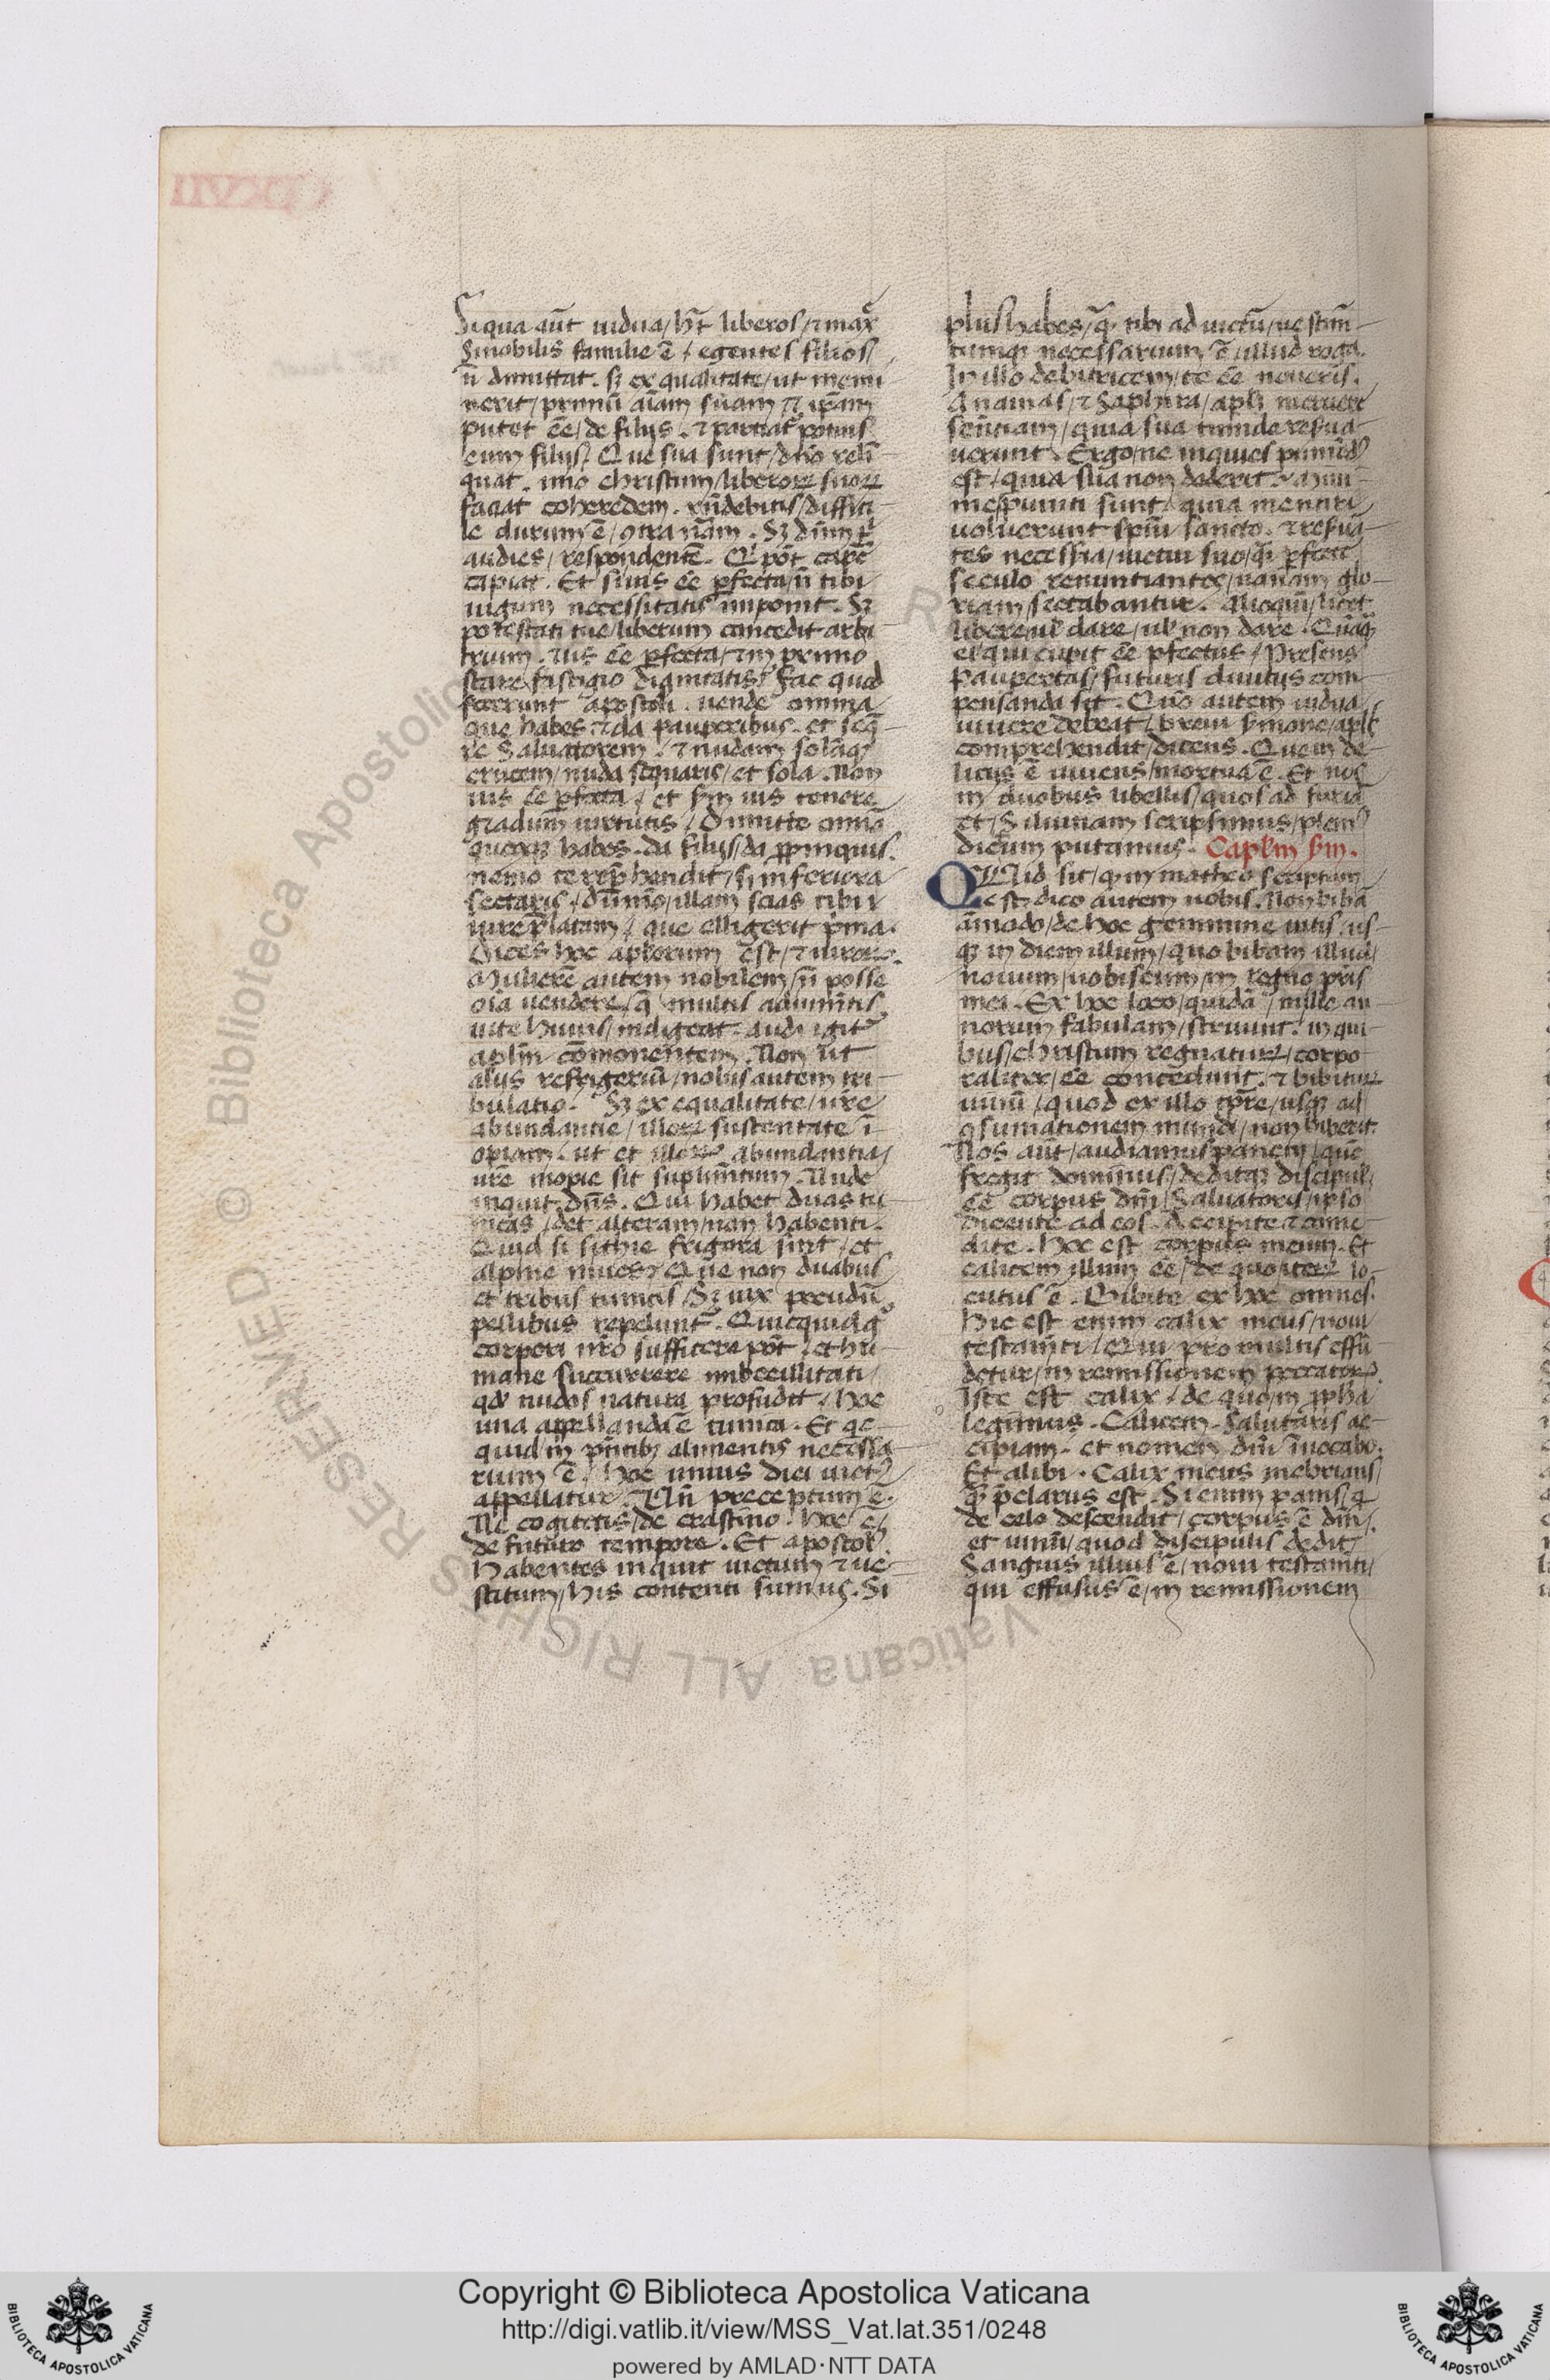 Siqua aūt uidua/h̄t liberos/⁊max̄
Si nobilis familie ē/egentes filios/
n̄ dimittat. Sꝫ ex qualitate/ut memi
nerit/primū aīam suam/⁊ ip̄am
putet ēē/de filiis. ⁊ partiat̄ potius
cum filiis? Que sua sunt/dn̄o reli
quat. imo christum/liberoꝝ suoꝝ
faciat coheredem. rn̄debitis/diffici
le durum ē/ꝯtra nām. Sꝫ dn̄m t̄
audies/respondentē. Qͥ pōt caꝑe
capiat. Et si uis ēē ꝑfecta/n̄ tibi
iugum necessitatis imponit. Sꝫ
potestati tue/liberum concedit arbi
trium. Uis ēē ꝑfecta/⁊in primo
stare fastigio dignitatis? Fac quod
fecerunt apostoli. uende omnia
que habes ⁊da pauperibus. et seq̄
re Saluatorem. ⁊nudam solāqꝫ
crucem/nuda sequaris/et sola. Non
uis ēē ꝑfecta/et sꝫm uis tenere
gradum uirtutis/Dimitte omīa
quecūqꝫ habes. da filiis/da ꝓpinquis.
nemo te rep̄hendit/si inferiora
sectaris/dūmō/illam scias tibi
iure p̄latam/que elligerit p̄ma.
Dices hoc apl̄orum est/⁊uiroꝝ.
Mulierē autem nobilem/n̄ posse
oīa uendere/q̄ multis adiumn̄tis
uite huius/indigeat. audi igit̄
apl̄m cōmonentem. Non ut
aliis refrigeriū/nobis autem tri-
bulatio. Sꝫ ex equalitate/ur̄e
abundantie/illoꝝ sustentate ī
opiam. ut et illoꝝ abundantia/
ur̄e inopie sit suplimn̄tum. Unde
inquit dn̄s. Qui habet duas tu
nicas/det alteram/non habenti.
Quid si sithie frigora sint/et
alpine niues? Que non duabus
et tribus tunicis/Sꝫ uix pecudū
pellibus repelunt̄. Quicquid g̊
corpori nr̄o sufficere pōt/et hu-
mane succurrere imbecillitati/
qđ nudos natura profudit/hoc
una appellanda ē tunica. Et qc-
quid in pn̄tibꝫ alimentis necessa
rium ē/hoc unius diei uict̄
appellatur. Uñ preceptum ē.
Ne cogitetis/de crastino. hoc ē/
de futuro tempore. Et apostol̄.
Habentes inquit uictum ⁊ue
stitum/his contenti sumus. Si
plus habes/q̄ tibi ad uictū/uestim̄
tumqꝫ necessarium ē/illud roga.
In illo debitricem/te ēē noueris.
Ananias/⁊Saphira/apl̄i meruer̄
sen̄tiam/quia sua timide reserua-
uerunt. Ergo/ne inquies puniēd̄
est/quia sua non dederit? Mini-
me/puniti sunt/quia mentiri
uoluerunt spiū sancto. ⁊reserua-
tes necess̄ia/uictui suo/q̄i ꝑfecte
seculo renuntiantes/uanam glo-
riam/sectabantur. Alioquī/licet
libere/ul̄ dare/ul̄ non dare. Quāqꝫ
ei qui cupit ēē ꝑfectus/Presens
paupertas/futuris diuitiis com
pensanda sit. Quō autem uidua
uiuere debeat/breui sermone/apl̄s
comprehendit/dicens. Que in de-
liciis ē uiuens/mortua ē. Et nos
in duobus libellis/quos ad furiā
et/Siluinam scripsimus/plenī
dictum putamus. Capl̄m sꝫm.
QUid sit/qđ in matheo scriptum
est/dico autem uobis. Non bibā
āmodo/de hoc genimine uitis/us-
qꝫ in diem illum/quo bibam illud/
nouum/uobiscum/in regno pr̄is
mei. Ex hoc loco/quidā/mille an-
norum fabulam/struunt. in qui-
bus/christum regnatuꝝ/corpo
raliter/ēē contēdunt. ⁊ bibituꝝ
uinū/quod ex illo tp̄re/usqꝫ ad
ꝯsumationem mundi/non biberit.
Nos aūt/audiamus/panem/quē
fregit dominus/deditqꝫ discipul̄/
ēē corpus dn̄i/Saluatoris/ipso
dicente ad eos. Accipite ⁊come
dite. hoc est corpus meum. Et
calicem illum ēē/de quo iteꝝ lo-
cutus ē. Bibite ex hoc omnes.
hic est enim calix meus/noui
testamn̄ti/Qui pro multis effū
detur/in remissionem peccatoꝝ.
Iste est calix/de quo/in ꝓpha
legimus. Calicem Salutaris ac-
cipiam. et nomen dn̄i īuocabo.
Et alibi. Calix meus inebrians/
qꝫ p̄clarus est. Si enim panis/q̄
de celo descendit/corpus ē dn̄i/
et uinū/quod discipulis dedit/
Sanguis illius ē/noui testamn̄ti/
qui effusus ē/in remissionem
Copyright © Biblioteca Apostolica Vaticana
http://digi.vatlib.it/view/MSS_Vat.lat.351/0248
powered by AMLAD·NTT DATA
BIBLIOTECA APOSTOLICA VATICANA
BIBLIOTECA APOSTOLICA VATICANA
© Biblioteca Apostolica Vaticana ALL RIGHTS RESERVED